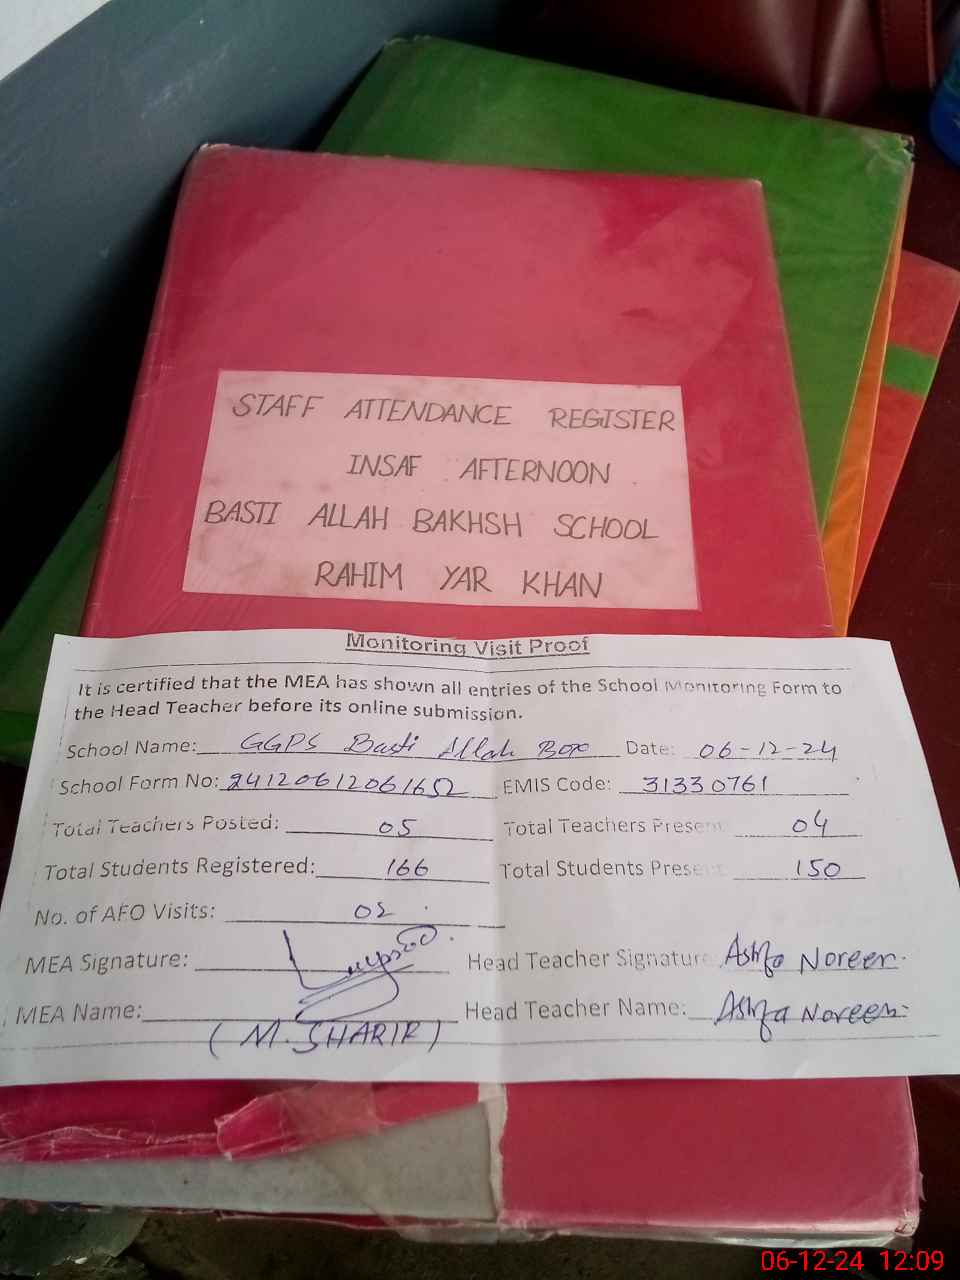 STAFF ATTENDANCE REGISTER
INSAF AFTERNOON
BASTI ALLAH BAKHSH SCHOOL
RAHIM YAR KHAN
Monitoring Visit Proof
It is certified that the MEA has shown all entries of the School Monitoring Form to
the Head Teacher before its online submission.
School Name: GGPS Basti Allah Box Date: 06-12-24
School Form No: 24120612061652 EMIS Code: 31330761
Total Teachers Posted: 05 Total Teachers Present 04
Total Students Registered: 166 Total Students Present 150
No. of AFO Visits: 02
MEA Signature: Head Teacher Signature Noreen.
MEA Name: Head Teacher Name: Noreen
(M. SHARIF)
06-12-24 12:09